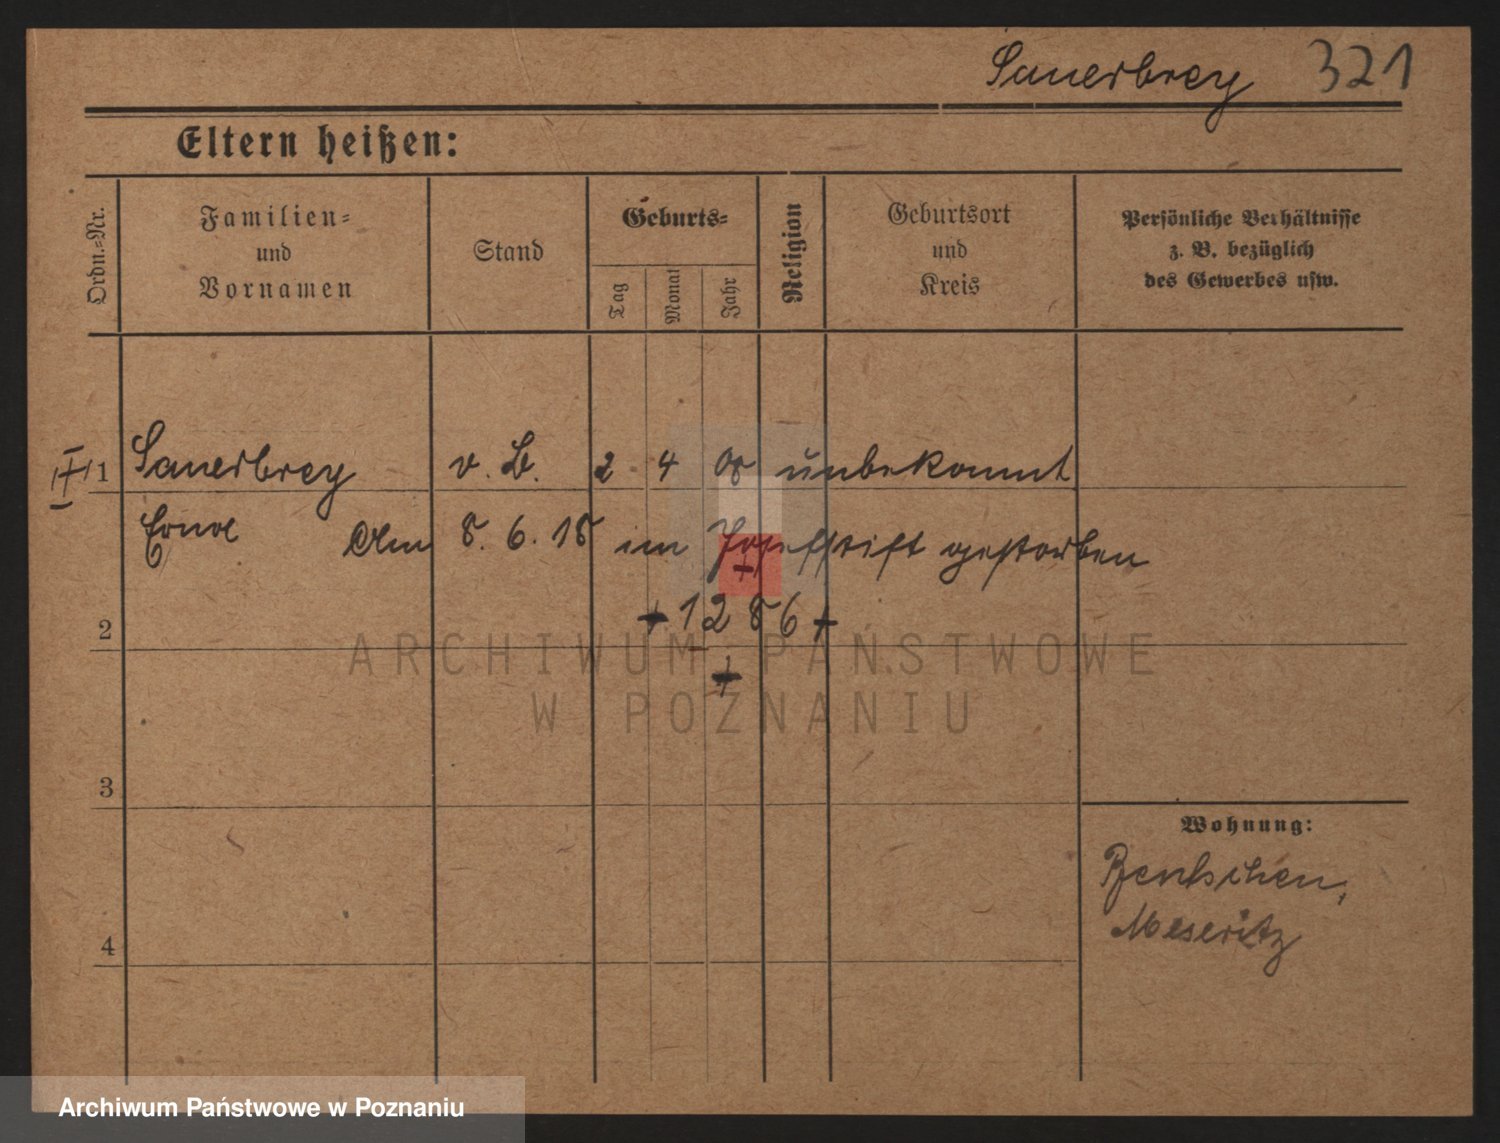 Sauerbrey 321
Eltern heißen:
Ordn.=Nr.
Familien=
und
Vornamen
Stand
Geburts=
Tag
Monat
Jahr
Religion
Geburtsort
und
Kreis
Persönliche Verhältnisse
z. B. bezüglich
des Gewerbes usw.
III 1 Sauerbrey v. B. 2 4 08 unbekannt
Am 8. 6. 18 im Josefstift gestorben
+ 1286 +
2
3
4
Wohnung:
Bentschen,
Meseritz
ARCHIWUM PAŃSTWOWE
W POZNANIU
Archiwum Państwowe w Poznaniu